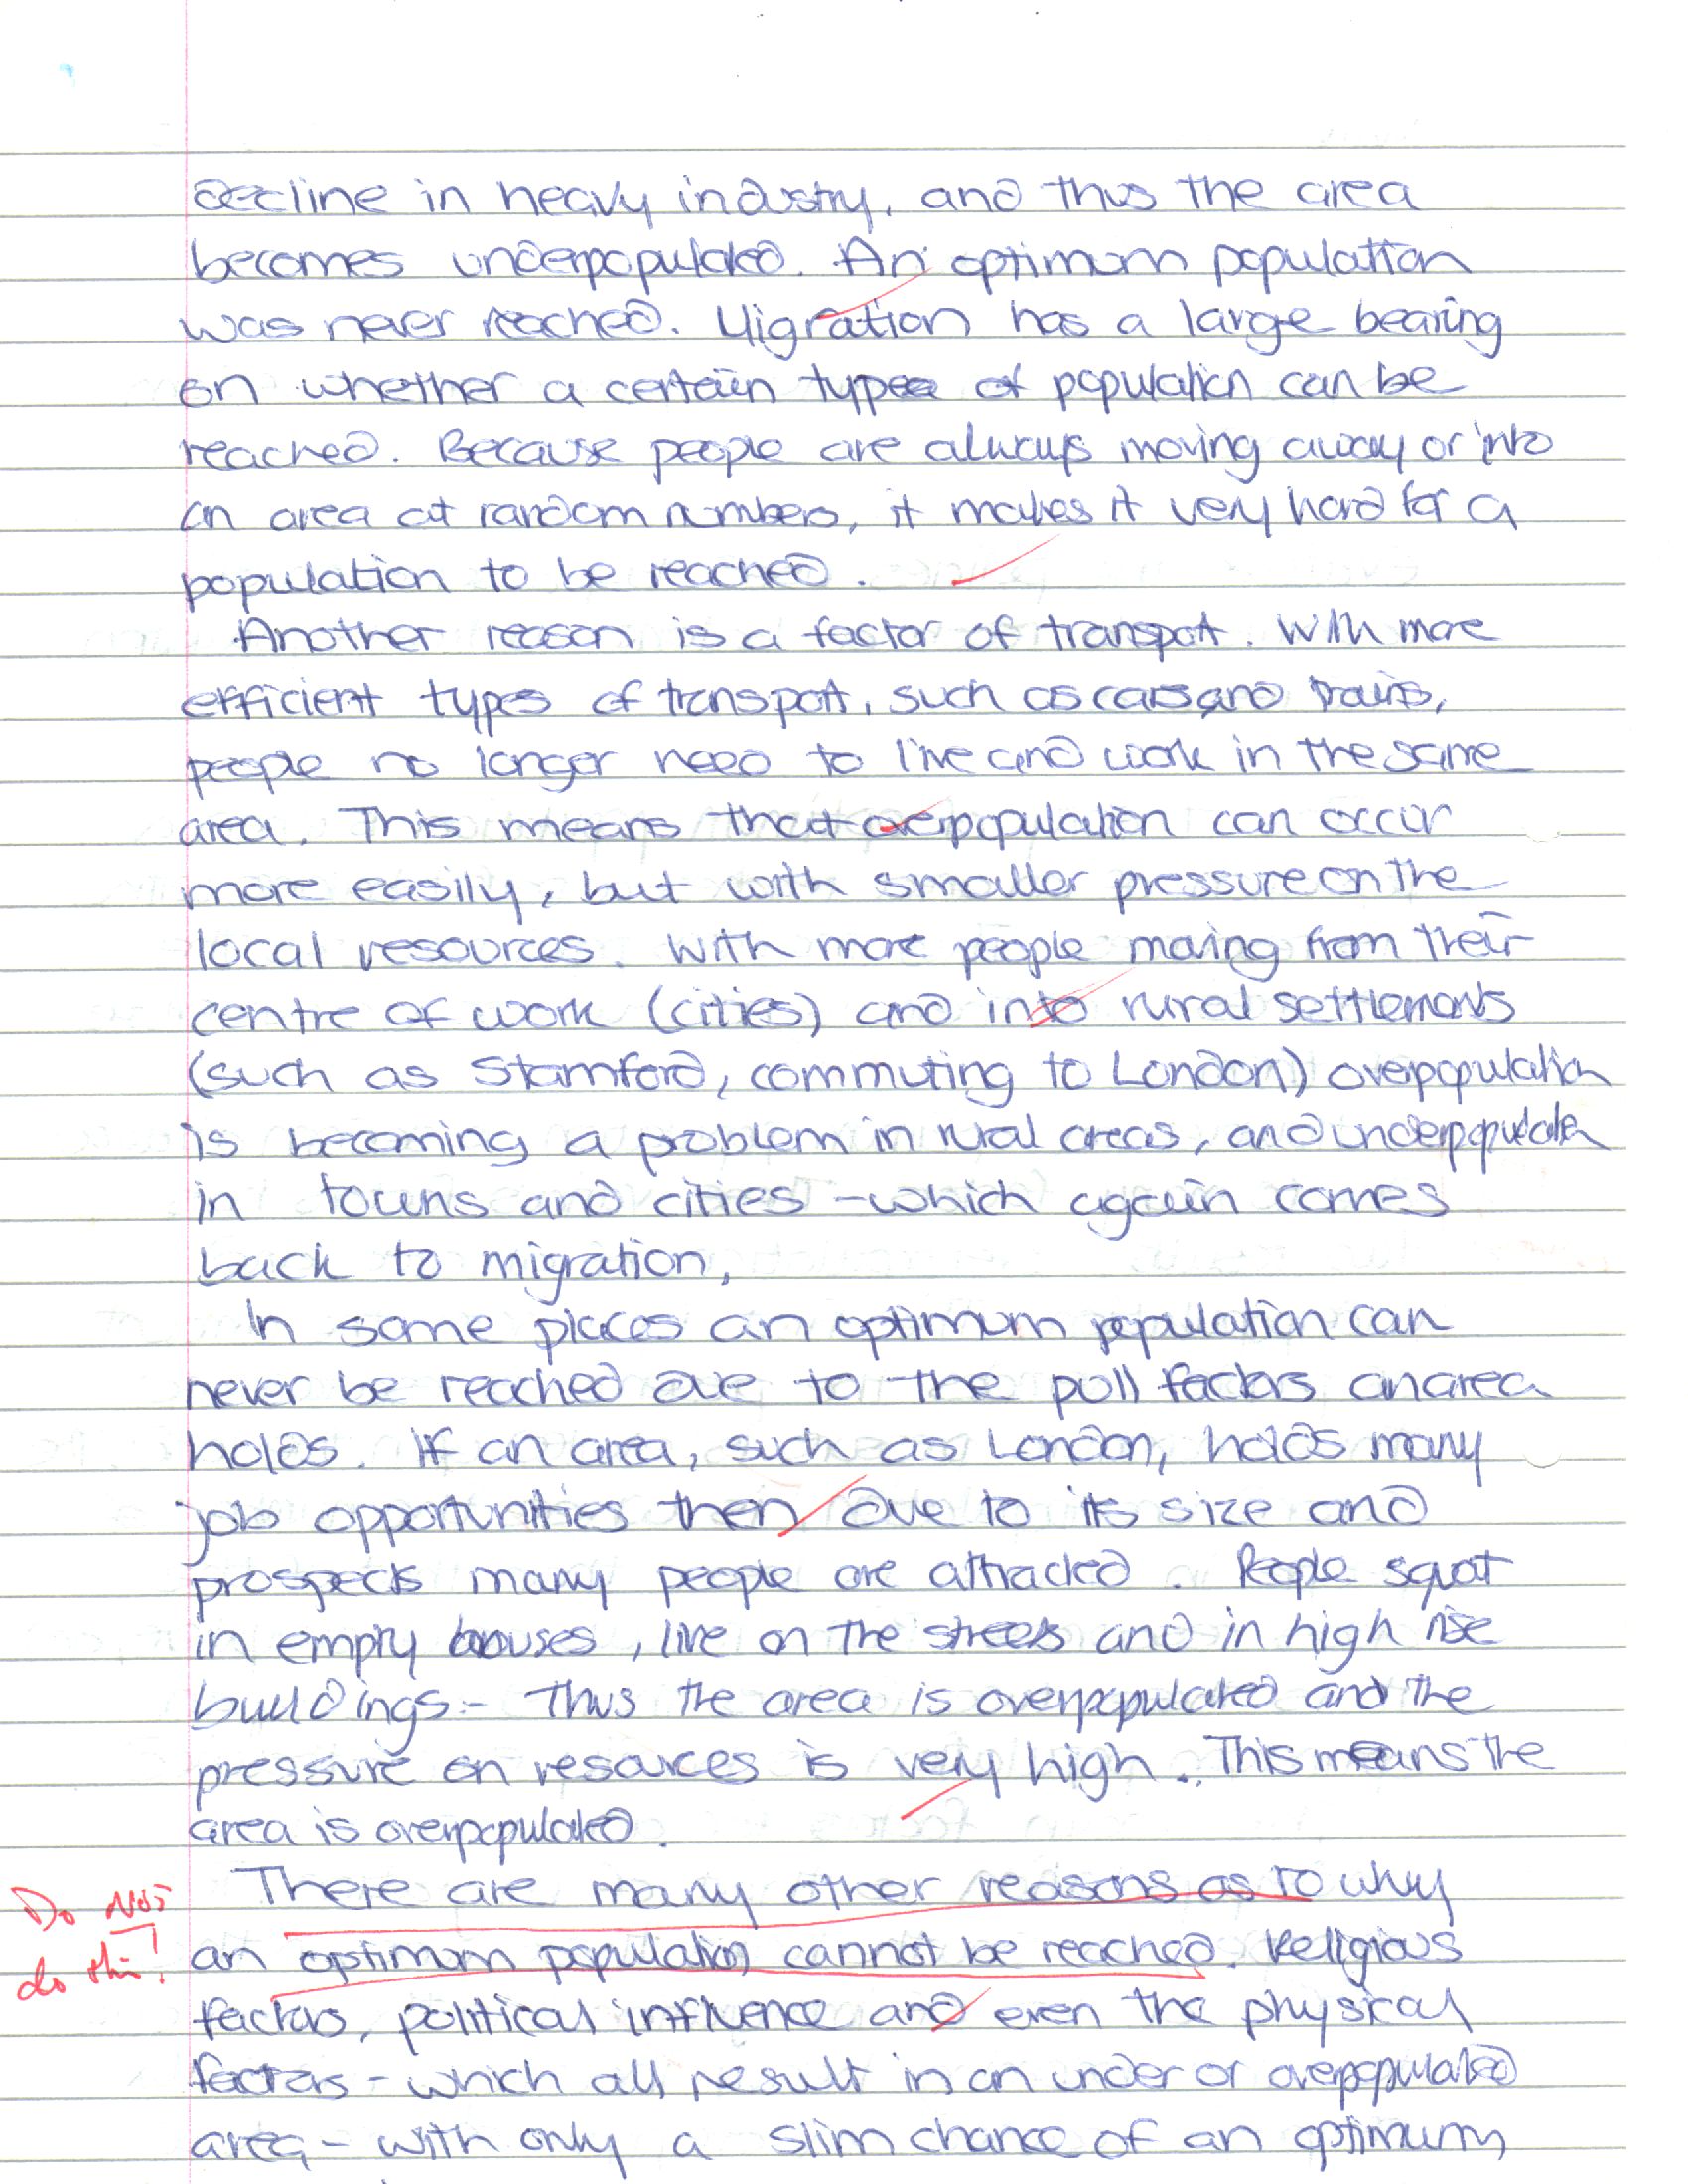 decline in heavy industry, and thus the area
becomes underpopulated. An optimum population
was never reached. Migration has a large bearing
on whether a certain type of population can be
reached. Because people are always moving away or into
an area at random numbers, it makes it very hard for a
population to be reached.
Another reason is a factor of transport. With more
efficient types of transport, such as cars and trains,
people no longer need to live and work in the same
area. This means that overpopulation can occur
more easily, but with smaller pressure on the
local resources. With more people moving from their
centre of work (cities) and into rural settlements
(such as Stamford, commuting to London) overpopulation
is becoming a problem in rural areas, and underpopulation
in towns and cities - which again comes
back to migration,
In some places an optimum population can
never be reached due to the pull factors an area
holds. If an area, such as London, holds many
job opportunities then due to its size and
prospects many people are attracted. People squat
in empty houses, live on the streets and in high rise
buildings - Thus the area is overpopulated and the
pressure on resources is very high. This means the
area is overpopulated.
There are many other reasons as to why
Do NOT
do this!
an optimum population cannot be reached. Religious
factors, political influence and even the physical
factors - which all result in an under or overpopulated
area - with only a slim chance of an optimum,